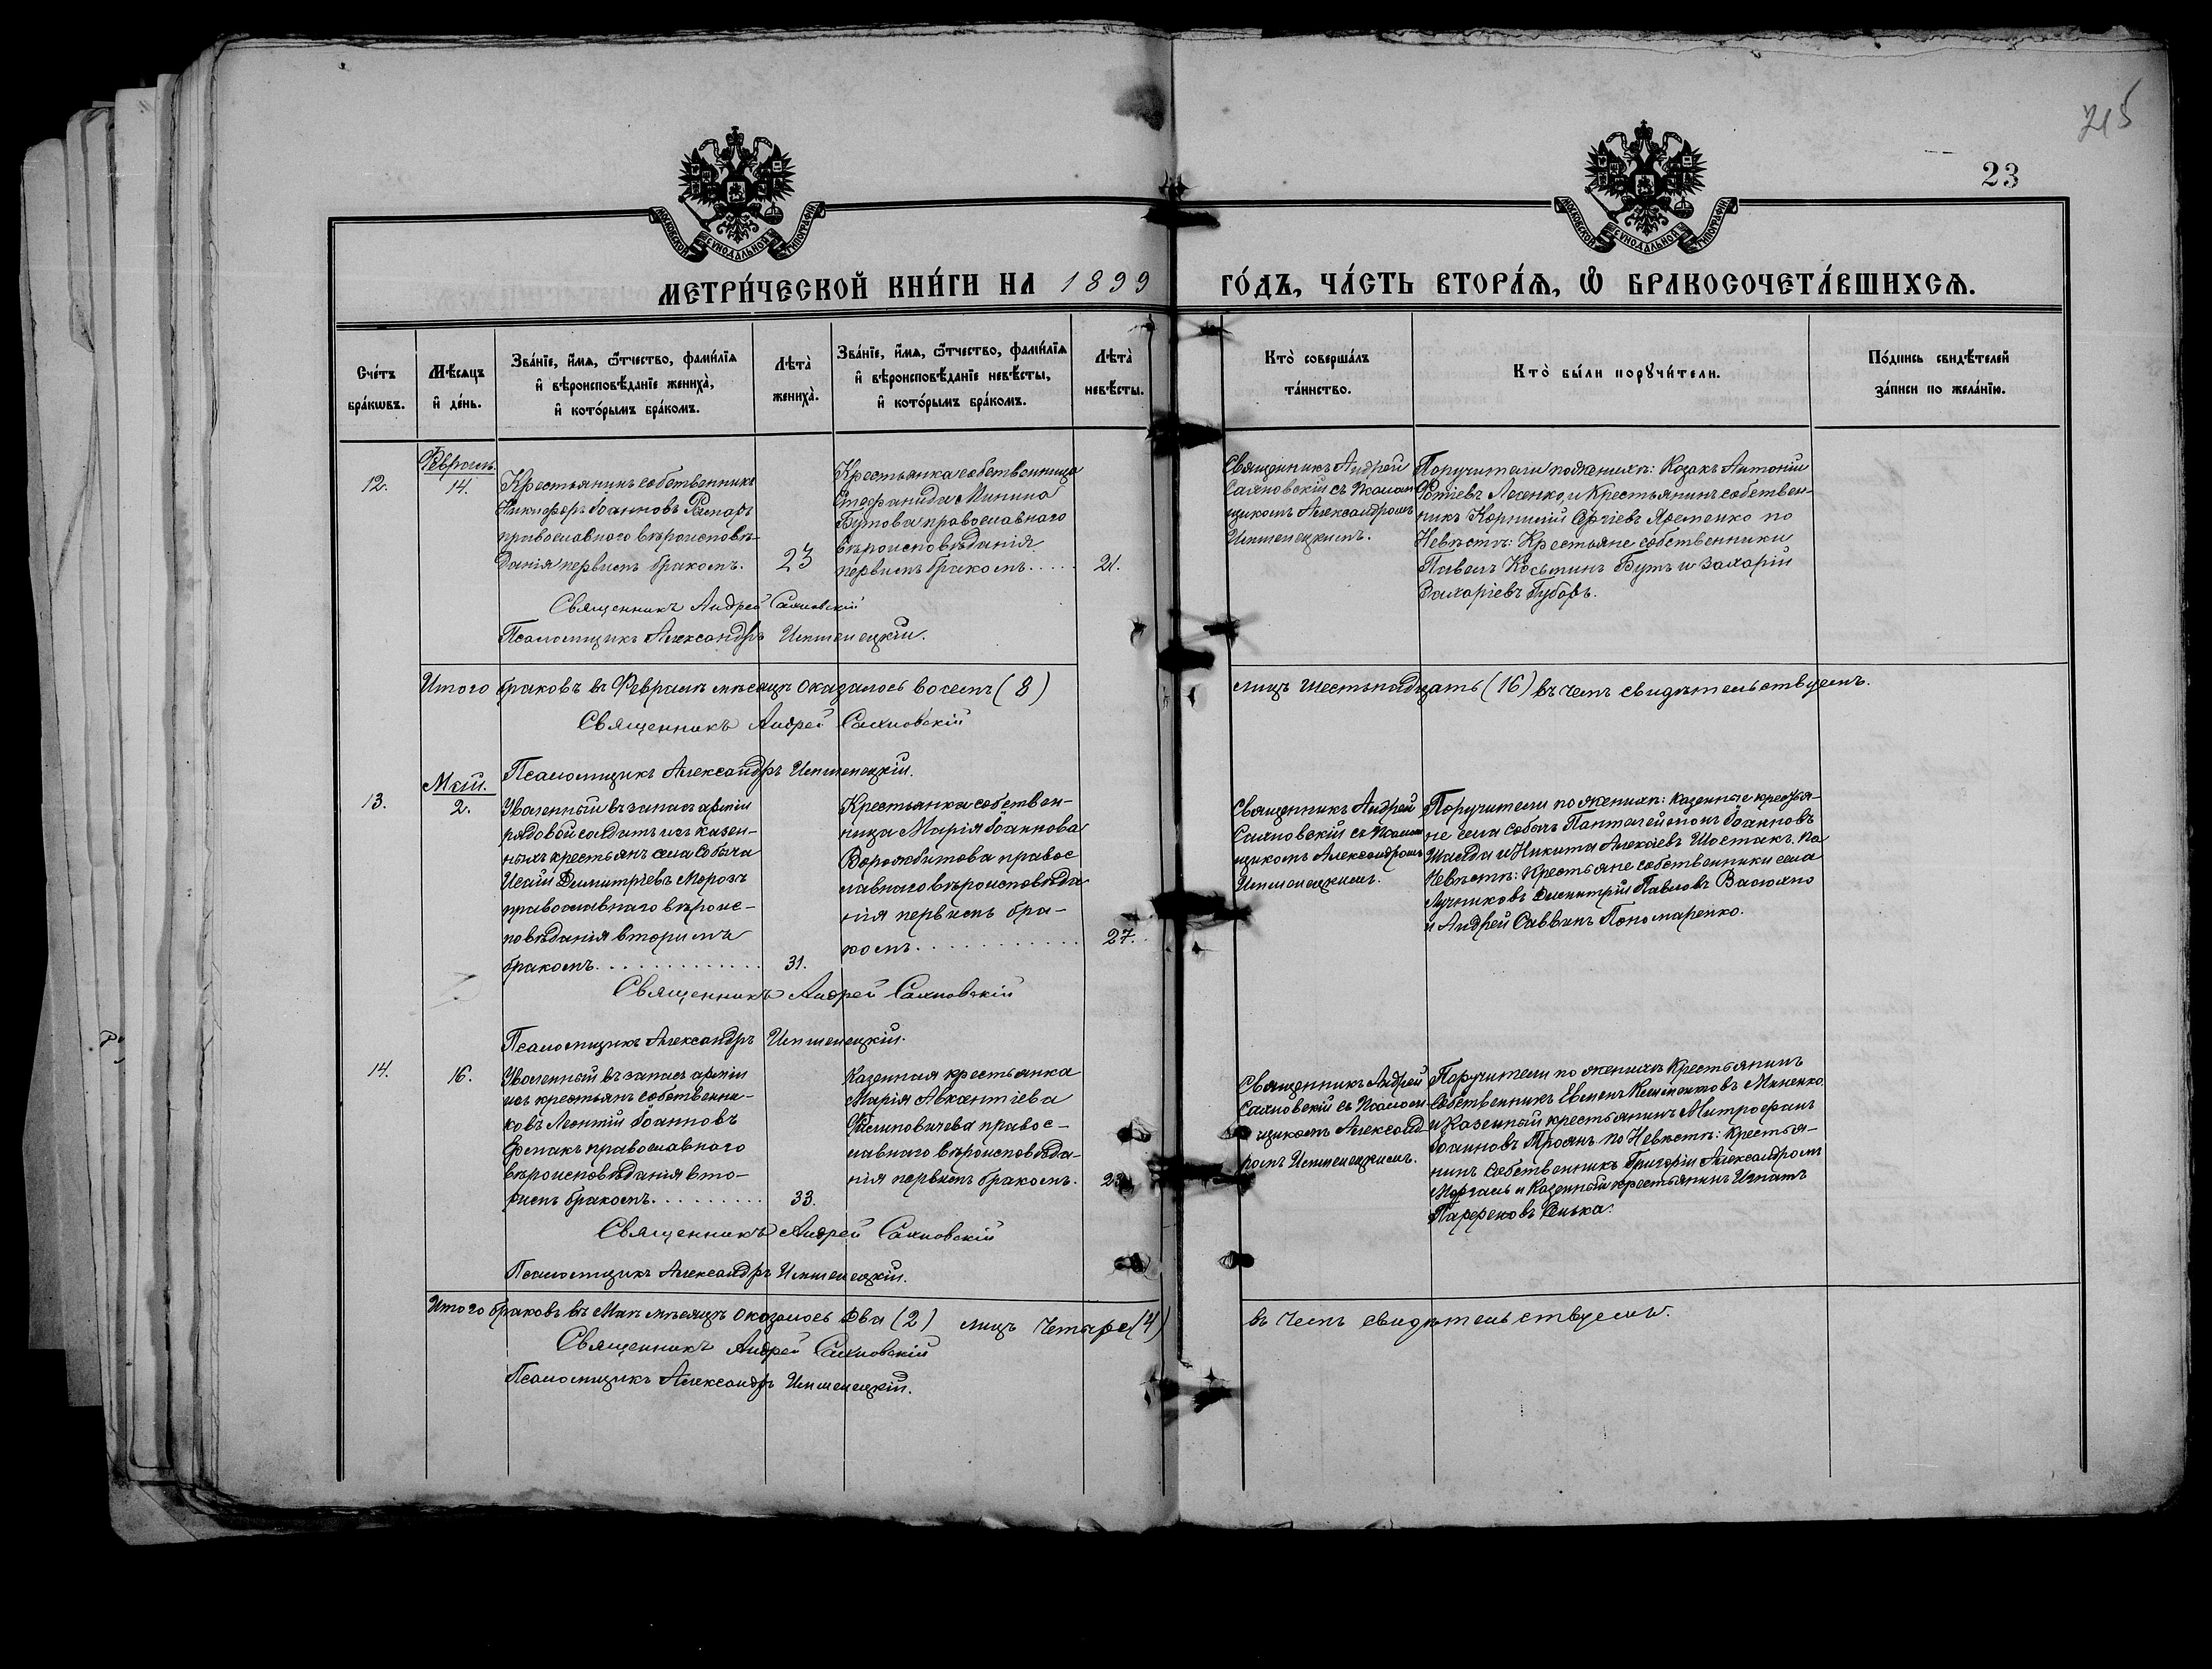 215
23
МОСКОВСКОЙ СѴНОДАЛЬНОЙ ТИПОГРАФІИ
МОСКОВСКОЙ СѴНОДАЛЬНОЙ ТИПОГРАФІИ
МЕТРИ́ЧЕСКОЙ КНИ́ГИ НА 1899 ГО́ДЪ, ЧА́СТЬ ВТОРА́Ѧ, Ѽ БРАКОСОЧЕТА́ВШИХСѦ.
Сче́тъ
бра́кѡвъ.
Мѣ́сѧцъ
и҆ де́нь.
Зва́нїе, и҆́мѧ, ѻ҆́тчество, фами́лїѧ
и҆ вѣроисповѣ́данїе жениха̀,
и҆ кото́рымъ бра́комъ.
Лѣта̀
жениха̀.
Зва́нїе, и҆́мѧ, ѻ҆́тчество, фами́лїѧ
и҆ вѣроисповѣ́данїе невѣ́сты,
и҆ кото́рымъ бра́комъ.
Лѣта̀
невѣ́сты.
Кто̀ соверша́лъ
та́инство.
Кто̀ бы́ли порꙋчи́тели.
По́дпись свидѣ́телей
за́писи по жела́нїю.
Февраль
12.
14.
Крестьянинъ собственникъ
Никифоръ Іоанновъ
православнаго вѣроисповѣ-
данія первымъ бракомъ.
23
Крестьянка собственница
Стефанида Минина
Бутова православнаго
вѣроисповѣданія
первымъ бракомъ.....
21.
Священникъ Андрей
Сахновскій съ Псалом
щикомъ Александромъ
Ипшенецкимъ.
Поручители по женихѣ: Козакъ Антоній
Фотіевъ Лесенко, и Крестьянинъ собствен-
никъ Корнилій Сергіевъ Яременко по
Невѣстѣ: Крестьяне собственники
Павелъ Косьминъ Бутъ и Захарій
Захаріевъ Губарь.
Священникъ Андрей Сахновскій
Псаломщикъ Александръ Ипшенецкій.
Итого браковъ въ Февралѣ мѣсяцѣ оказалось восемъ (8)
лицъ шестьнадцать (16) въ чемъ свидѣтельствуемъ.
Священникъ Андрей Сахновскій
Псаломщикъ Александръ Ипшенецкій.
Май.
13.
2.
Уволенный въ запасъ арміи
рядовой солдатъ изъ казен-
ныхъ крестьянъ села Собыча
Исаій Димитріевъ Морозъ
православнаго вѣроис-
повѣданія вторымъ
бракомъ.............
31.
Крестьянка собствен-
ница Марія Іоаннова
Ворожбитова правос
лавнаго вѣроисповѣда
нія первымъ бра-
комъ............
27.
Священникъ Андрей
Сахновскій съ Псалом
щикомъ Александромъ
Ипшенецкимъ.
Поручители по женихѣ: казенные крестья-
не села Собычъ Пантелеймонъ Іоанновъ
и Никита Алексѣевъ Шостакъ. По
Невѣстѣ: Крестьяне собственники села
Лучниковъ Димитрій Павловъ
и Андрей Саввинъ Пономаренко.
Священникъ Андрей Сахновскій
Псаломщикъ Александръ Ипшенецкій.
14.
16.
Уволенный въ запасъ арміи
изъ крестьянъ собственни-
ковъ Леонтій Іоанновъ
Ермакъ православнаго
вѣроисповѣданія вто-
рымъ бракомъ.........
33.
Казенная крестьянка
Марія Авксентіева
Филиповичева правос-
лавнаго вѣроисповѣда-
нія первымъ бракомъ.
Священникъ Андрей
Сахновскій съ Псалом-
щикомъ Александ-
ромъ Ипшенецкимъ.
Поручители по женихѣ Крестьянинъ
Собственникъ Евменъ Климентовъ Миненко
и Казенный крестьянинъ Митрофанъ
Іоанновъ Троянъ по Невѣстѣ: Крестья-
нинъ Собственникъ Григорій Александровъ
и Казенный крестьянинъ Игнатъ
Парфеновъ
Священникъ Андрей Сахновскій
Псаломщикъ Александръ Ипшенецкій.
Итого браковъ въ Маѣ мѣсяцѣ оказалось Два (2) лицъ четыре (4)
въ чемъ свидѣтельствуемъ.
Священникъ Андрей Сахновскій
Псаломщикъ Александръ Ипшенецкій.